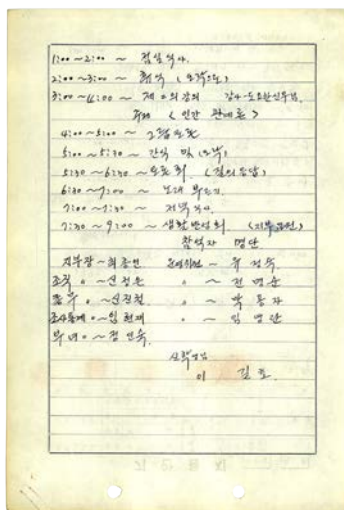 1:00~2:00 ~ 점심식사.
2:00~3:00 ~ 휴식 (오락으로)
3:00~4:00 ~ 제 의 강의 강사-도요한신부님.
주제 <인간 관계론>
4:00~5:00 ~ 그룹토론
5:00~5:30 ~ 간식 및 (오락)
5:30~6:30 ~ 토론회. (질의응답)
6:30~7:00 ~ 노래 부르기
7:00~7:30 ~ 저녁식사.
7:30~9:00 ~ 생활반성회 (지부임원)
참석자 명단
지부장~최종인 운영위원~유정숙
조직 〃 ~신정은 〃 ~전명순
총무 〃 ~신진철 〃 ~박통자
조사통계 〃 ~임현재 〃 ~임명단
부녀 〃 ~정인숙.
이 길